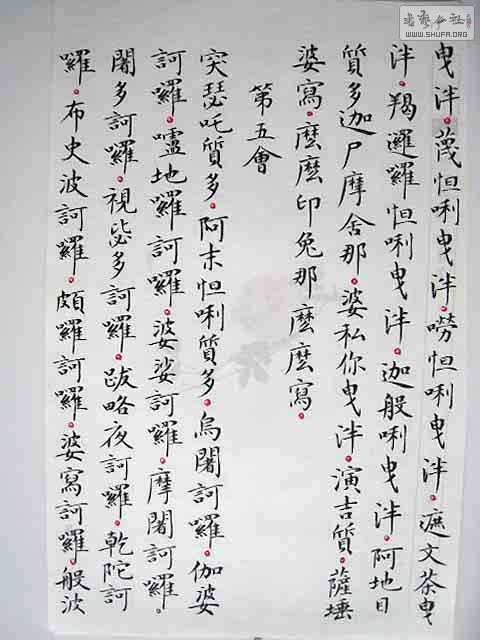 曳泮。蔑怛唎曳泮。嘮怛唎曳泮。遮文荼曳
泮。羯邏羅怛唎曳泮。迦般唎曳泮。阿地目
質多迦尸摩舍那。婆私你曳泮。演吉質。薩埵
婆寫。麼麼印兔那麼麼寫。
第五會
突瑟吒質多。阿末怛唎質多。烏闍訶羅。伽婆
訶羅。嚧地羅訶羅。婆娑訶羅。摩闍訶羅。
闍多訶羅。視毖多訶羅。跋略夜訶羅。乾陀訶
囉。布史波訶羅。頗羅訶羅。婆寫訶羅。般波
WWW.SHUFA.ORG